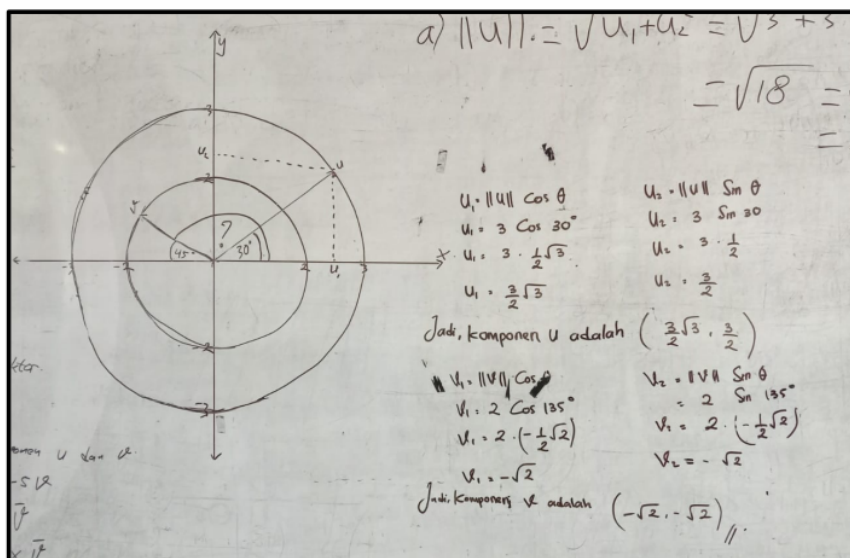 a) ||U|| = √U₁+U₂² = √3 + 3
= √18 =
=
y
3
U₂
u
2
v
?
45°
30°
x
-3
-2
U₁
2
3
-2
-3
U₁ = ||U|| Cos θ
U₁ = 3 Cos 30°
U₁ = 3 · 1/2 √3
U₁ = 3/2 √3
U₂ = ||U|| Sin θ
U₂ = 3 Sin 30
U₂ = 3 · 1/2
U₂ = 3/2
Jadi, komponen U adalah (3/2 √3, 3/2)
V₁ = ||V|| Cos θ
V₁ = 2 Cos 135°
V₁ = 2 · (-1/2 √2)
V₁ = -√2
V₂ = ||V|| Sin θ
= 2 Sin 135°
V₂ = 2 · (-1/2 √2)
V₂ = -√2
Jadi, komponen V adalah (-√2, -√2) //
ktor.
onen U dan V
-5V
V̄
x V̄